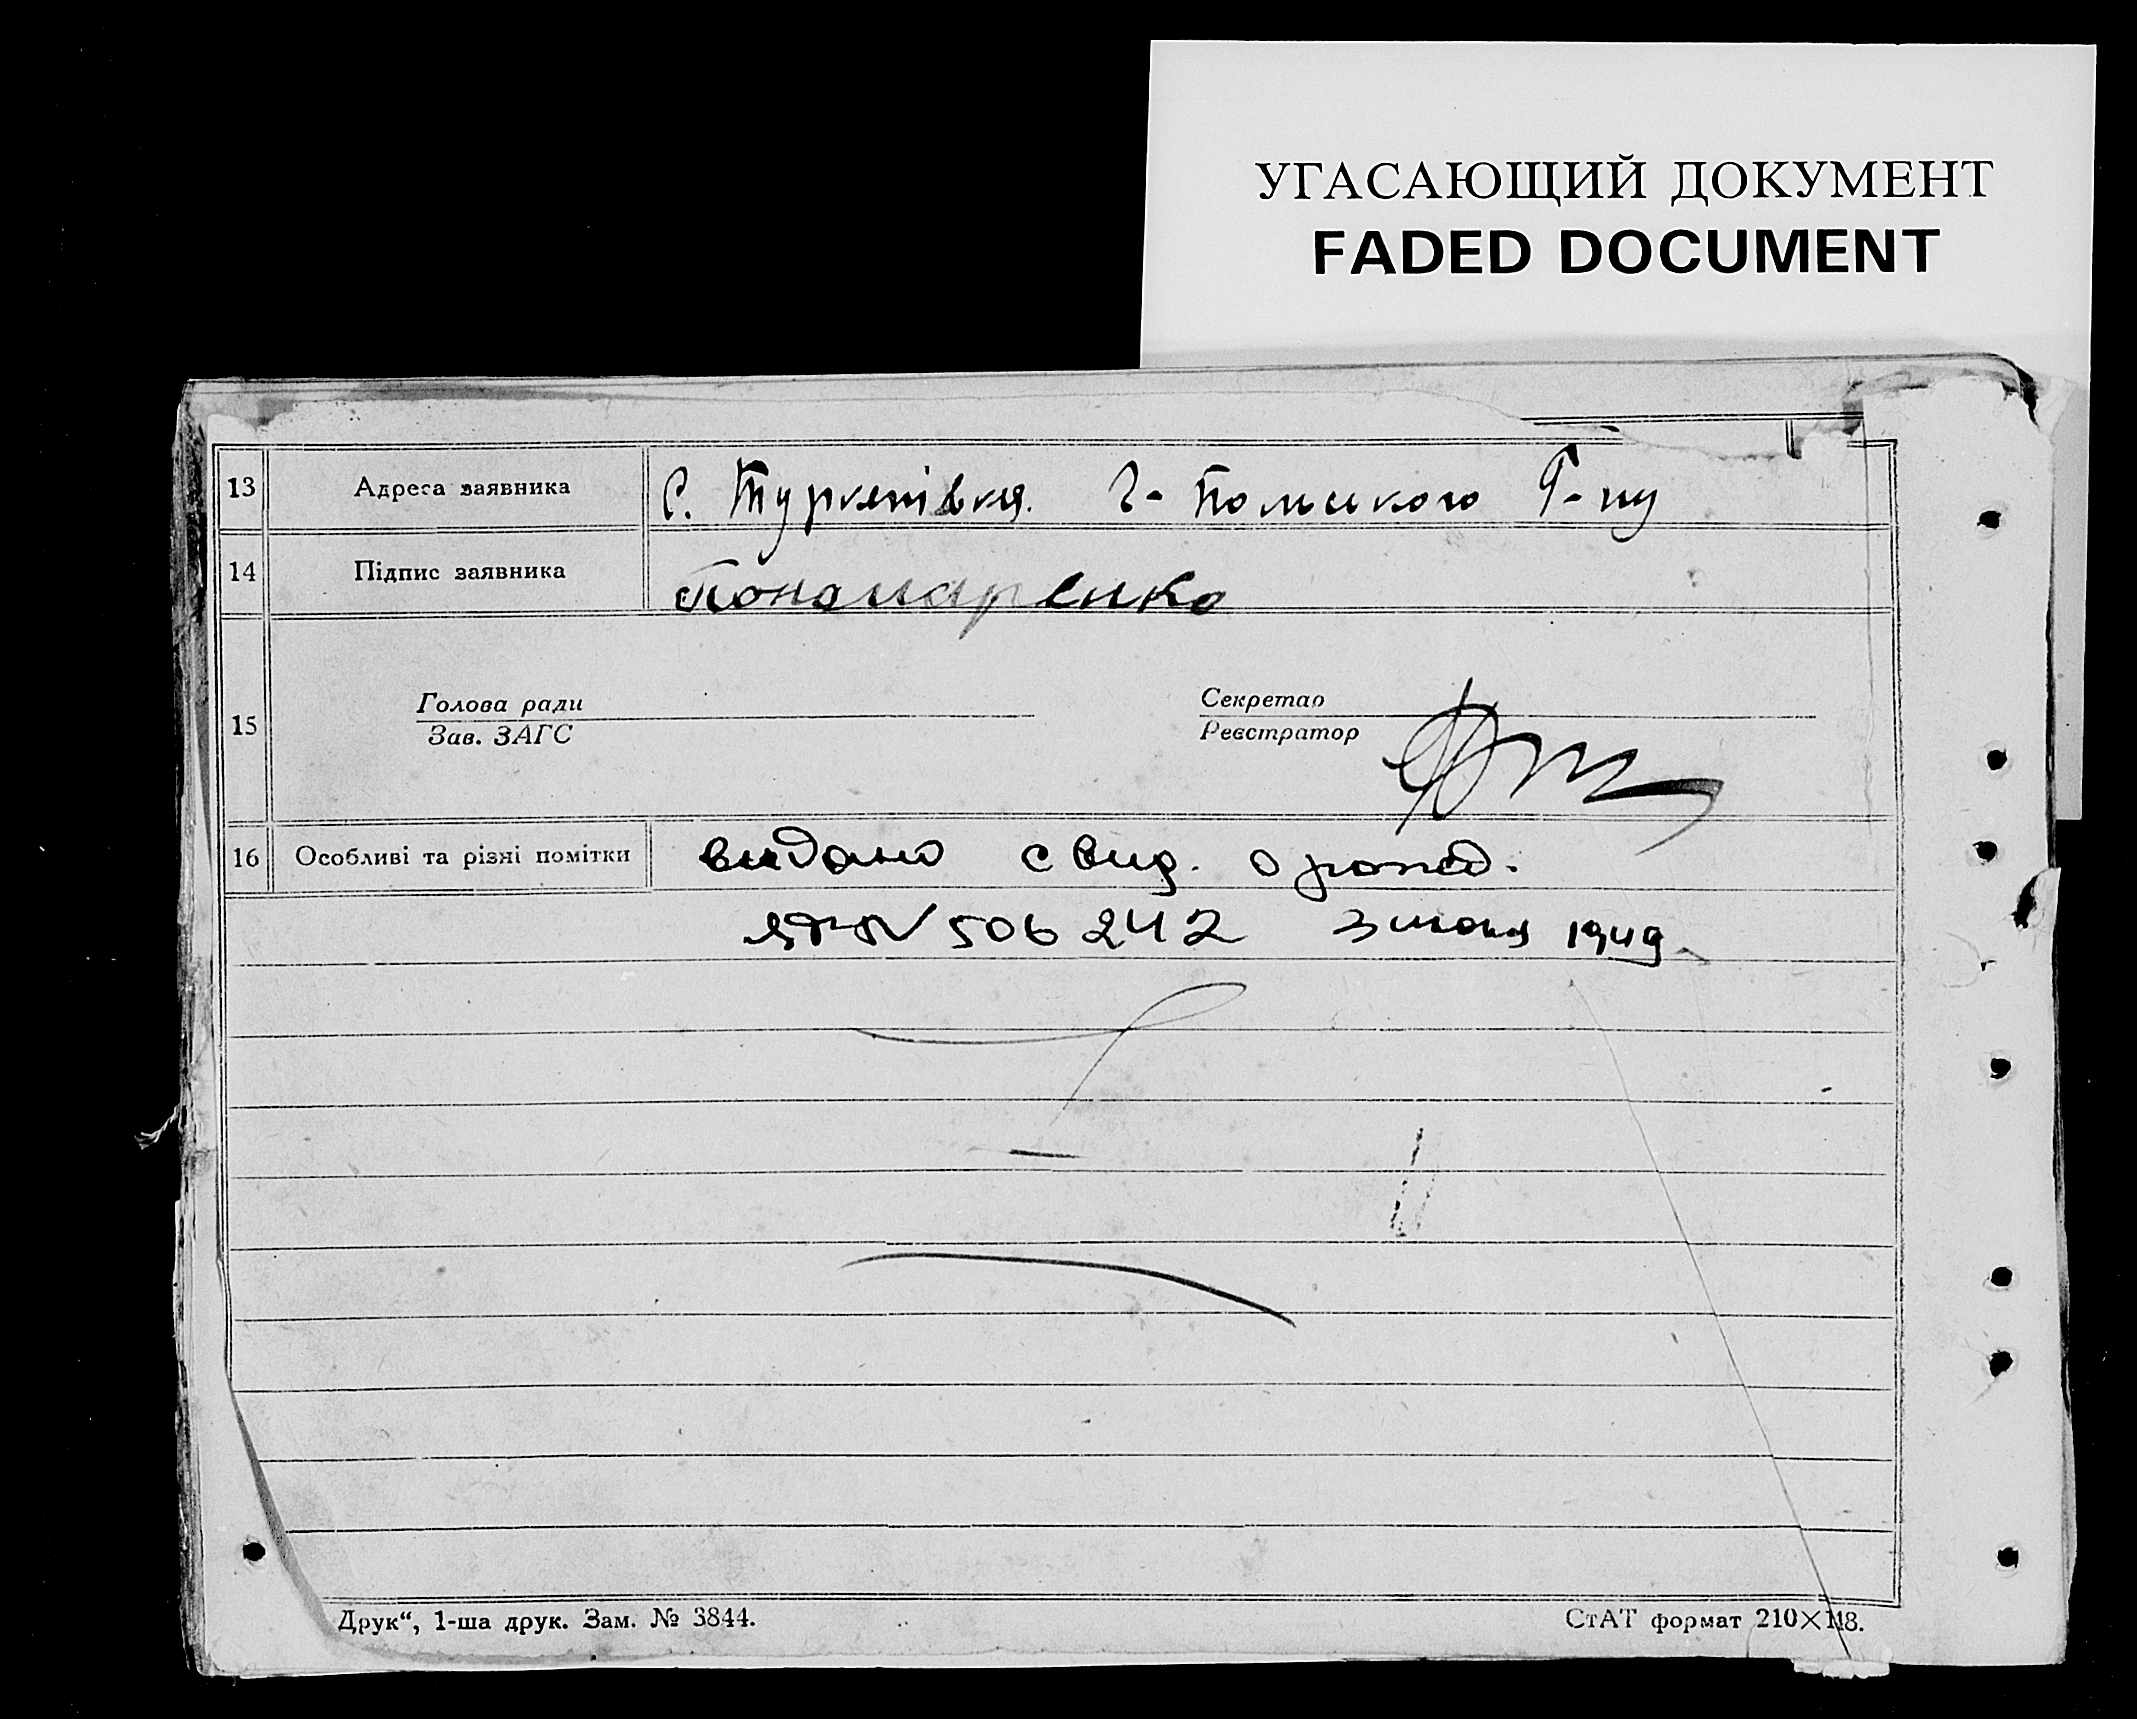 УГАСАЮЩИЙ ДОКУМЕНТ
FADED DOCUMENT
13 Адреса заявника С. Туркенівка. Г-Польського Р-ну
14 Підпис заявника Пономаренко
15 Голова ради Зав. ЗАГС Секретар Реєстратор
16 Особливі та різні помітки видано свид. о рожд.
506242 3 июня 1949
Друк“, 1-ша друк. Зам. № 3844. СтАТ формат 210×148.